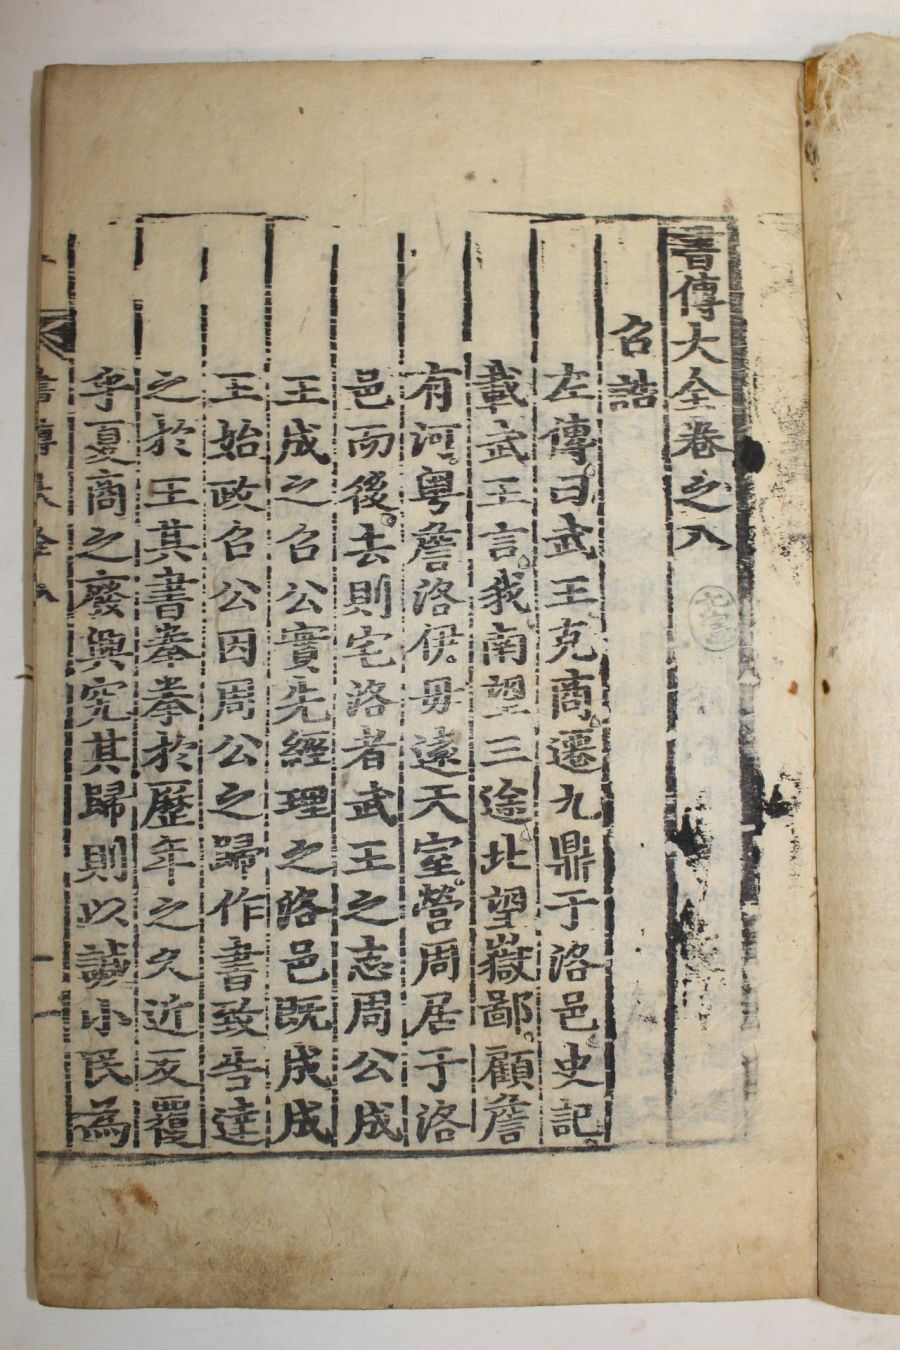 書傳大全卷之八
召誥
左傳曰武王克商遷九鼎于洛邑史記
載武王言我南望三途北望嶽鄙顧詹
有河粤詹洛伊毋遠天室營周居于洛
邑而後去則宅洛者武王之志周公成
王成之召公實先經理之洛邑既成成
王始政召公因周公之歸作書致告達
之於王其書拳拳於歷年之久近反覆
乎夏商之廢興究其歸則以諴小民為
書傳大全八